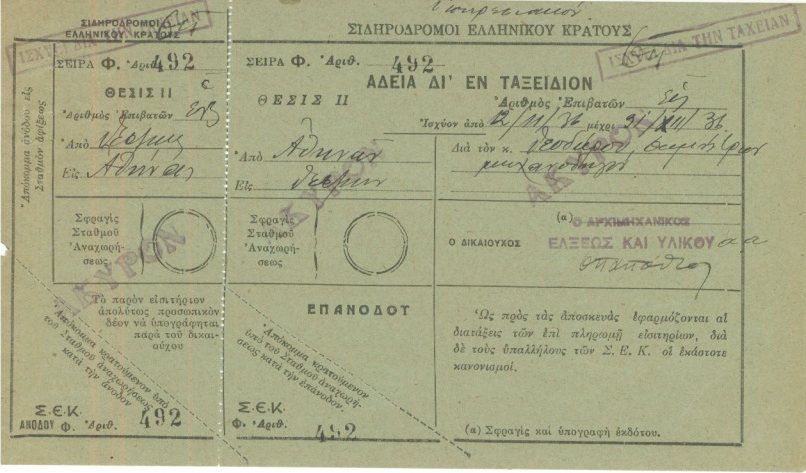 ΣΙΔΗΡΟΔΡΟΜΟΙ
ΕΛΛΗΝΙΚΟΥ ΚΡΑΤΟΥΣ
ΙΣΧΥΕΙ ΔΙΑ ΤΗΝ ΤΑΧΕΙΑΝ
ΣΕΙΡΑ Φ. Ἀριθ. 492
ΘΕΣΙΣ ΙΙ
Ἀριθμὸς Ἐπιβατῶν
Ἀπὸ
Εἰς Ἀθήνας
Σφραγὶς
Σταθμοῦ
Ἀναχωρή-
σεως
ΑΚΥΡΟΝ
Τὸ παρὸν εἰσιτήριον
ἀπολύτως προσωπικὸν
δέον νὰ ὑπογράφηται
παρὰ τοῦ δικαι-
ούχου
Ἀπόκομμα κρατούμενον ὑπὸ
τοῦ Σταθμοῦ ἀναχωρήσεως
κατὰ τὴν ἄνοδον
Σ.Ε.Κ.
ΑΝΟΔΟΥ Φ. Ἀριθ. 492
Ἀπόκομμα ἀνόδου εἰς
Σταθμὸν ἀφίξεως
ΣΙΔΗΡΟΔΡΟΜΟΙ ΕΛΛΗΝΙΚΟΥ ΚΡΑΤΟΥΣ
ΙΣΧΥΕΙ ΔΙΑ ΤΗΝ ΤΑΧΕΙΑΝ
ΣΕΙΡΑ Φ. Ἀριθ. 492
ΘΕΣΙΣ ΙΙ
Ἀπὸ Ἀθηνῶν
Εἰς
Σφραγὶς
Σταθμοῦ
Ἀναχωρή-
σεως
ΑΚΥΡΟΝ
ΕΠΑΝΟΔΟΥ
Ἀπόκομμα κρατούμενον
ὑπὸ τοῦ Σταθμοῦ ἀναχωρή-
σεως κατὰ τὴν ἐπάνοδον.
Σ.Ε.Κ.
Φ. Ἀριθ. 492
ΑΔΕΙΑ ΔΙ' ΕΝ ΤΑΞΕΙΔΙΟΝ
Ἀριθμὸς Ἐπιβατῶν
Ἰσχύον ἀπὸ 12/11/36 μέχρι
Διὰ τὸν κ.
ΑΚΥΡΟΝ
(α)
Ο ΑΡΧΙΜΗΧΑΝΙΚΟΣ
Ο ΔΙΚΑΙΟΥΧΟΣ ΕΛΞΕΩΣ ΚΑΙ ΥΛΙΚΟΥ α.α
Ὡς πρὸς τὰς ἀποσκευὰς ἐφαρμόζονται αἱ
διατάξεις τῶν ἐπὶ πληρωμῇ εἰσιτηρίων, διὰ
δὲ τοὺς ὑπαλλήλους τῶν Σ.Ε.Κ. οἱ ἑκάστοτε
κανονισμοί.
(α) Σφραγὶς καὶ ὑπογραφὴ ἐκδότου.